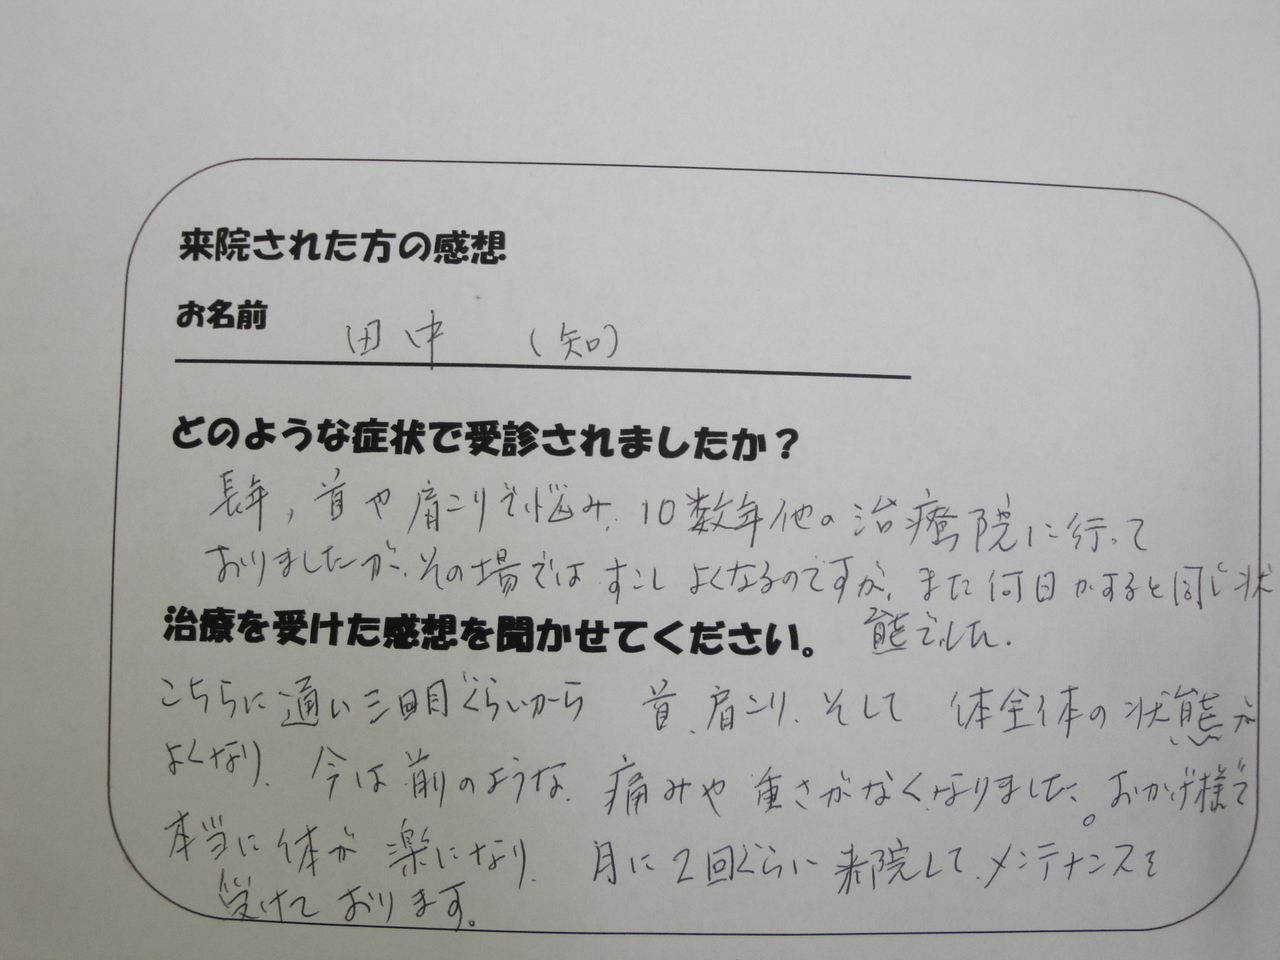 来院された方の感想
お名前 田中 (知)
どのような症状で受診されましたか?
長年,首や肩こりで悩み、10数年他の治療院に行って
おりましたが、その場ではすこしよくなるのですが、また何日かすると同じ状
態でした.
治療を受けた感想を聞かせてください。
こちらに通い三回目ぐらいから 首、肩こり、そして 体全体の状態が
よくなり、今は前のような、痛みや重さがなくなりました。おかげ様で
本当に体が楽になり、月に2回ぐらい来院して、メンテナンスを
受けております。